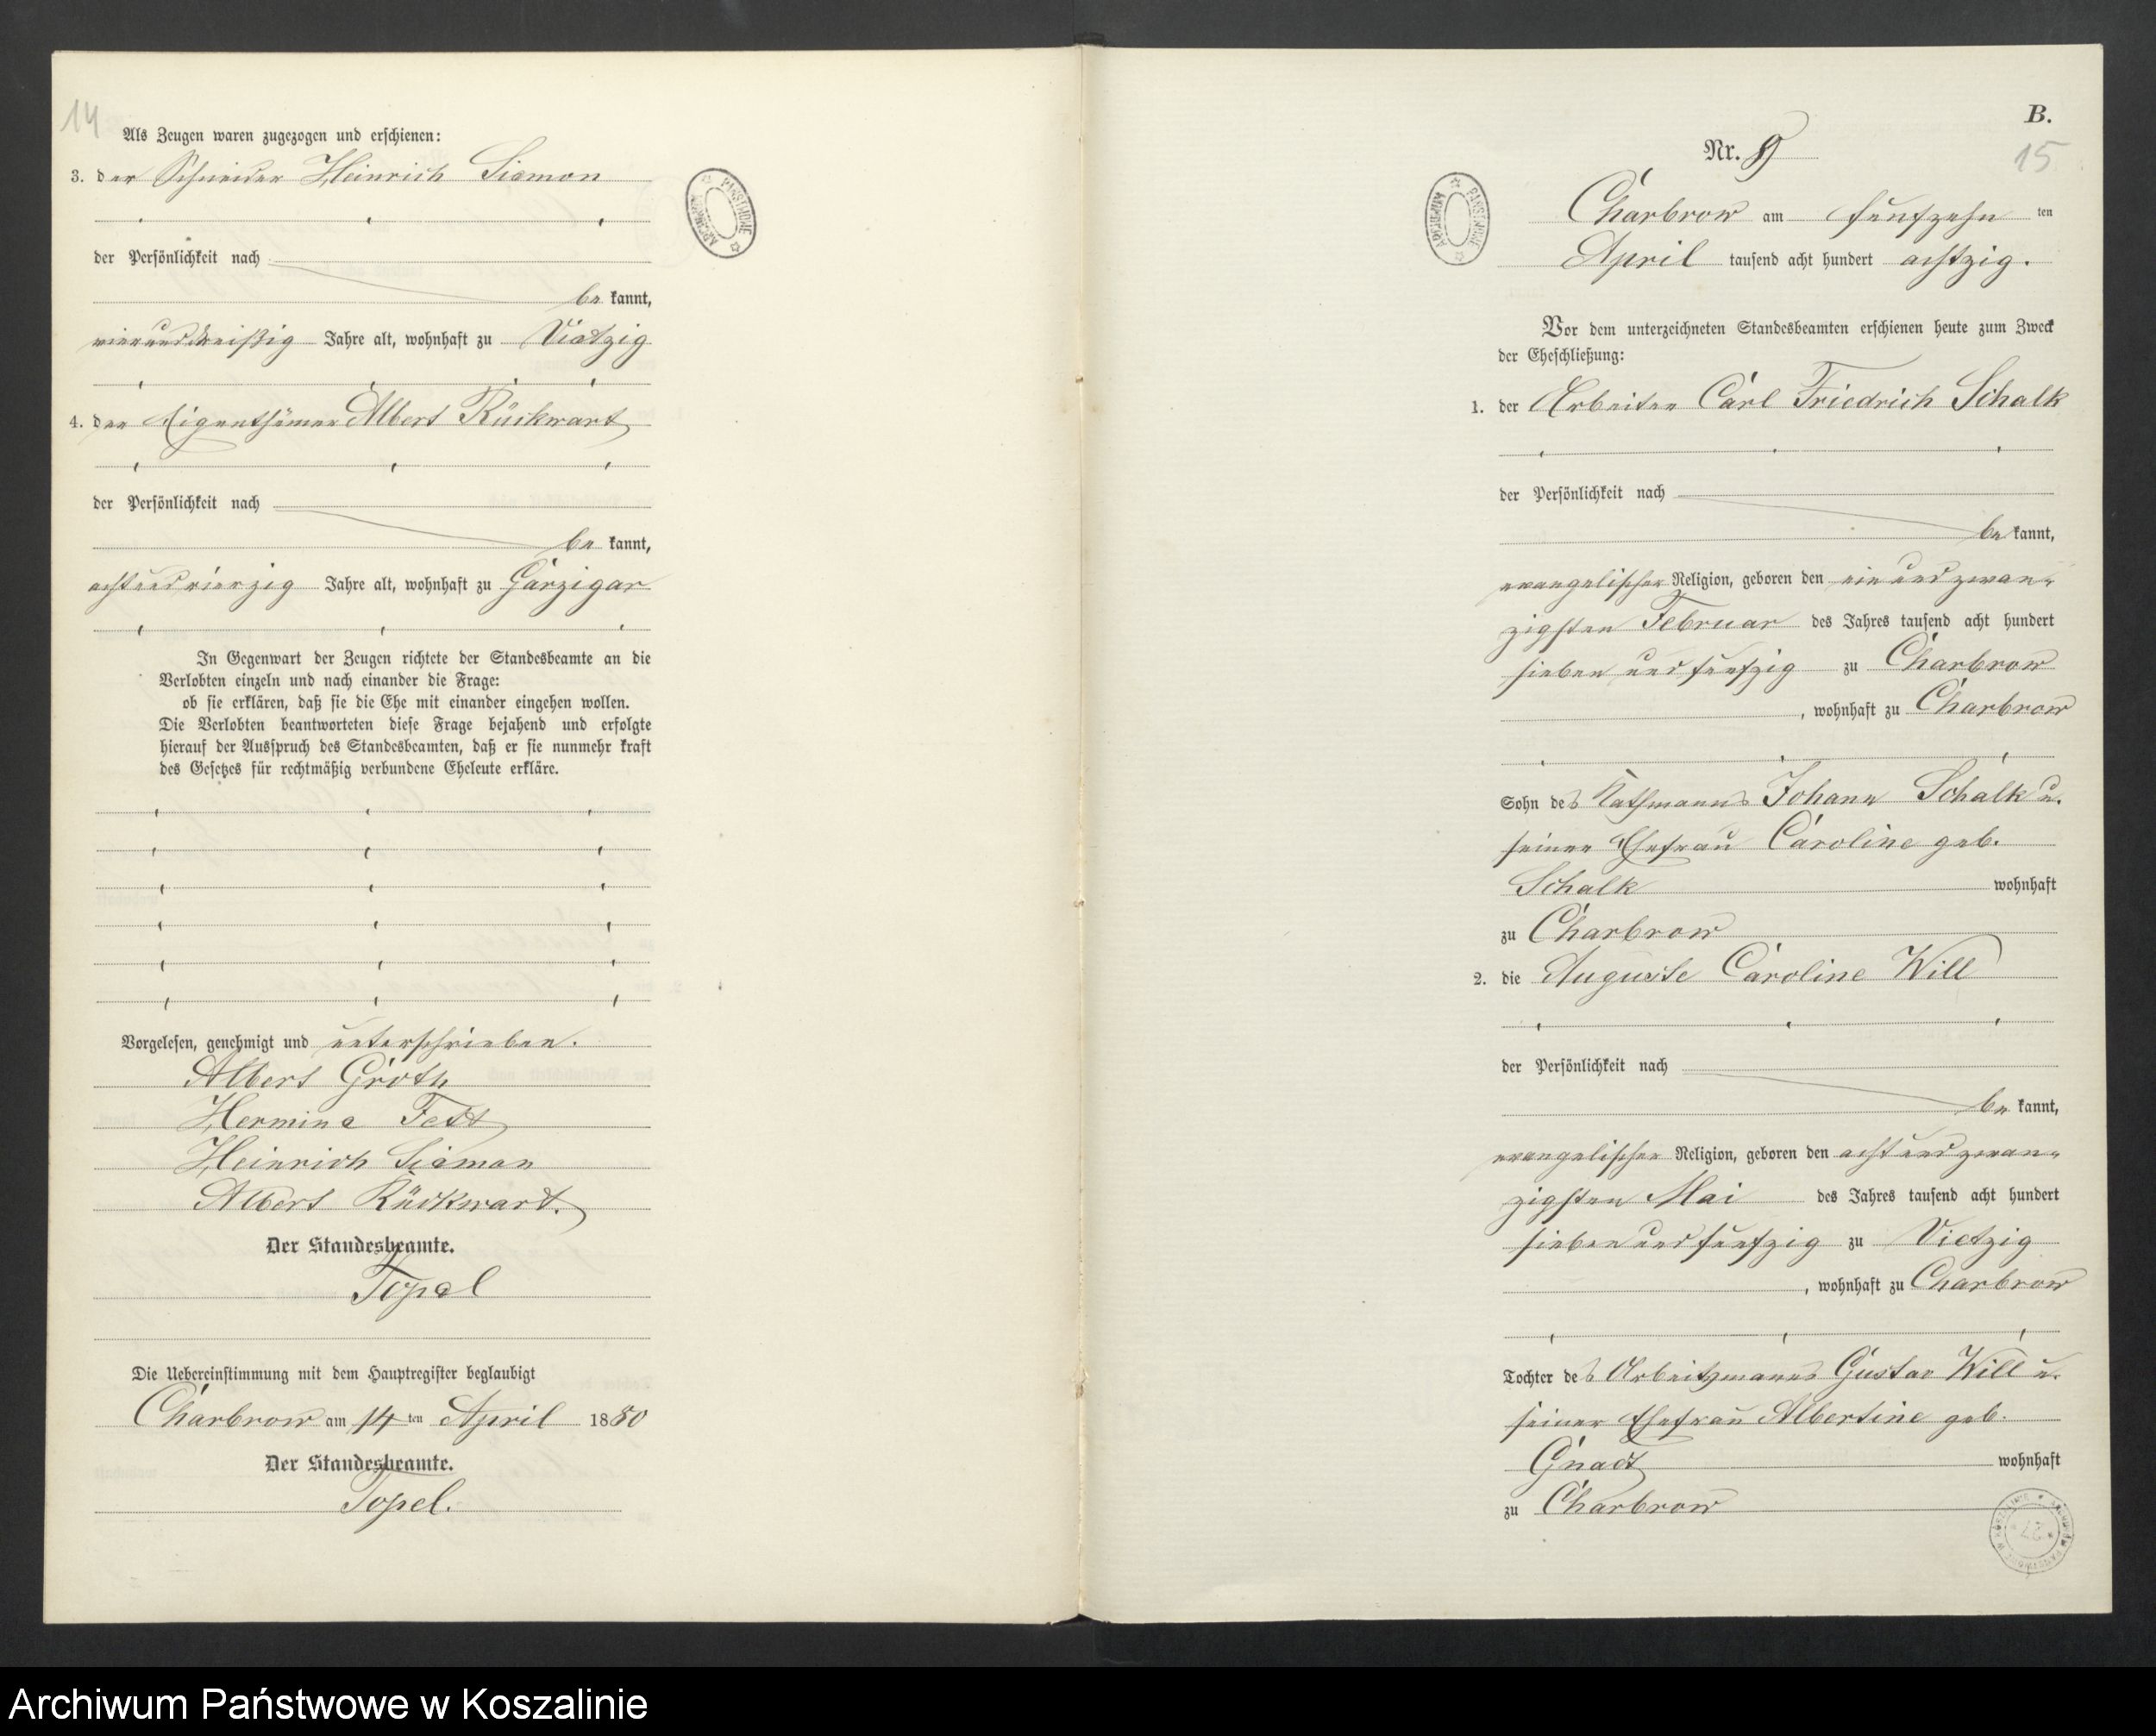 14
Als Zeugen waren zugezogen und erschienen:
3. der Schneider Heinrich Siemon
der Persönlichkeit nach
be kannt,
vierunddreißig Jahre alt, wohnhaft zu Vietzig
4. der Eigenthümer Albert Rückwart
der Persönlichkeit nach
be kannt,
achtundvierzig Jahre alt, wohnhaft zu Garzigar
In Gegenwart der Zeugen richtete der Standesbeamte an die
Verlobten einzeln und nach einander die Frage:
ob sie erklären, daß sie die Ehe mit einander eingehen wollen.
Die Verlobten beantworteten diese Frage bejahend und erfolgte
hierauf der Ausspruch des Standesbeamten, daß er sie nunmehr kraft
des Gesetzes für rechtmäßig verbundene Eheleute erkläre.
Vorgelesen, genehmigt und unterschrieben.
Albert Groth
Hermine
Heinrich Siemon
Albert Rückwart.
Der Standesbeamte.
Topel
Die Uebereinstimmung mit dem Hauptregister beglaubigt
Charbrow am 14ten April 1880
Der Standesbeamte.
Topel.
B.
Nr. 9
15
Charbrow am fünfzehn ten
April tausend acht hundert achtzig.
Vor dem unterzeichneten Standesbeamten erschienen heute zum Zweck
der Eheschließung:
1. der Arbeiter Carl Friedrich Schalk
der Persönlichkeit nach
be kannt,
evangelischer Religion, geboren den ein und zwan-
zigsten Februar des Jahres tausend acht hundert
sieben und fünfzig zu Charbrow
, wohnhaft zu Charbrow
Sohn des Kathmanns Johann Schalk u.
seiner Ehefrau Caroline geb.
Schalk wohnhaft
zu Charbrow
2. die Auguste Caroline Will
der Persönlichkeit nach
be kannt,
evangelischer Religion, geboren den acht und zwan-
zigsten Mai des Jahres tausend acht hundert
sieben und fünfzig zu Vietzig
, wohnhaft zu Charbrow
Tochter des Arbeitsmanns Gustav Will u.
seiner Ehefrau Albertine geb.
Gnadt wohnhaft
zu Charbrow
ARCHIWUM PAŃSTWOWE
ARCHIWUM PAŃSTWOWE
ARCHIWUM PAŃSTWOWE W KOSZALINIE
27
Archiwum Państwowe w Koszalinie